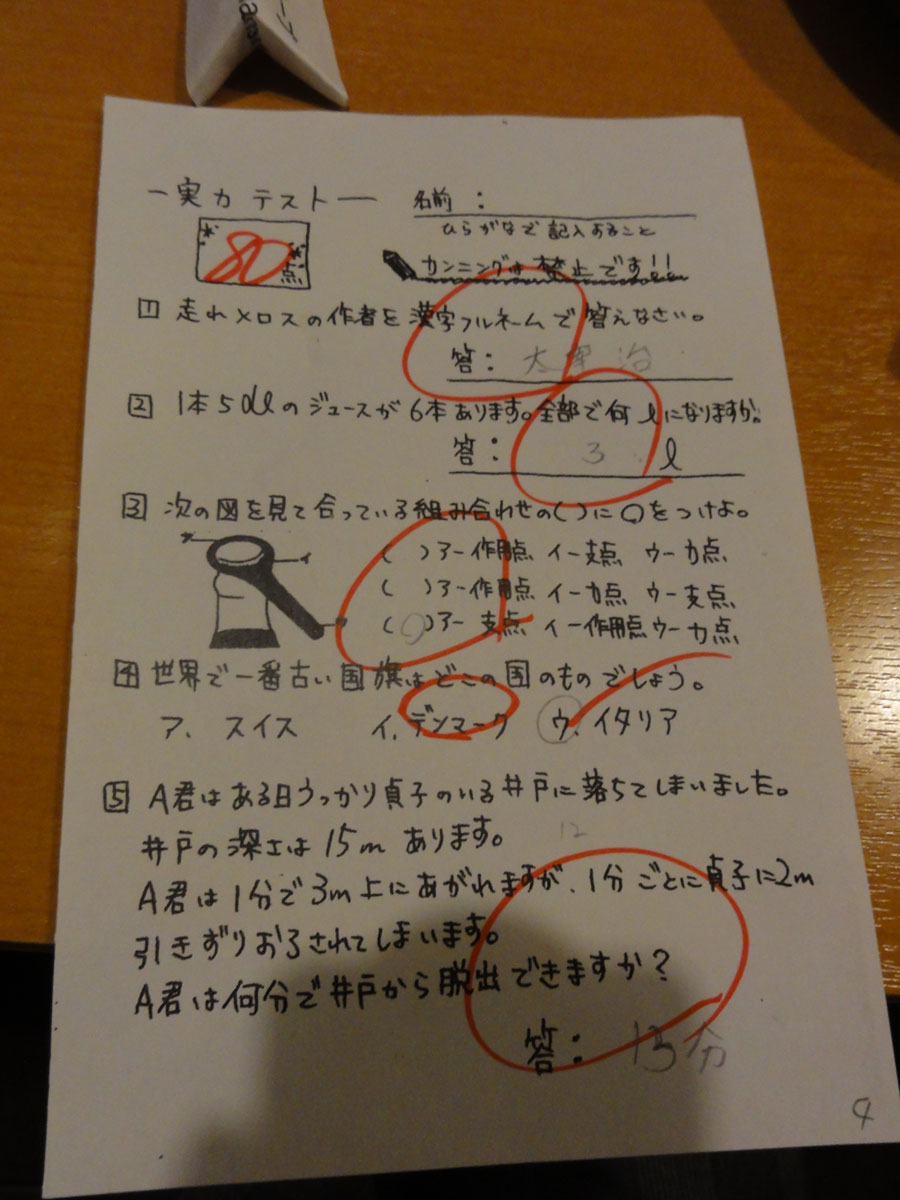 ープ
ー実力テストー
名前：
ひらがなで記入あること
80点
カンニングは禁止です!!
1 走れメロスの作者を漢字フルネームで答えなさい。
答： 太宰治
2 1本5dlのジュースが6本あります。全部で何lになりますか。
答： 3 l
3 次の図を見て合っている組み合わせの( )に○をつけよ。
( )アー作用点 イー支点 ウー力点
( )アー作用点 イー力点 ウー支点
(○)アー支点 イー作用点 ウー力点
4 世界で一番古い国旗はどこの国のものでしょう。
ア. スイス イ. デンマーク ウ. イタリア
5 A君はある日うっかり貞子のいる井戸に落ちてしまいました。
井戸の深さは15mあります。
12
A君は1分で3m上にあがれますが、1分ごとに貞子に2m
引きずりおろされてしまいます。
A君は何分で井戸から脱出できますか？
答： 13分